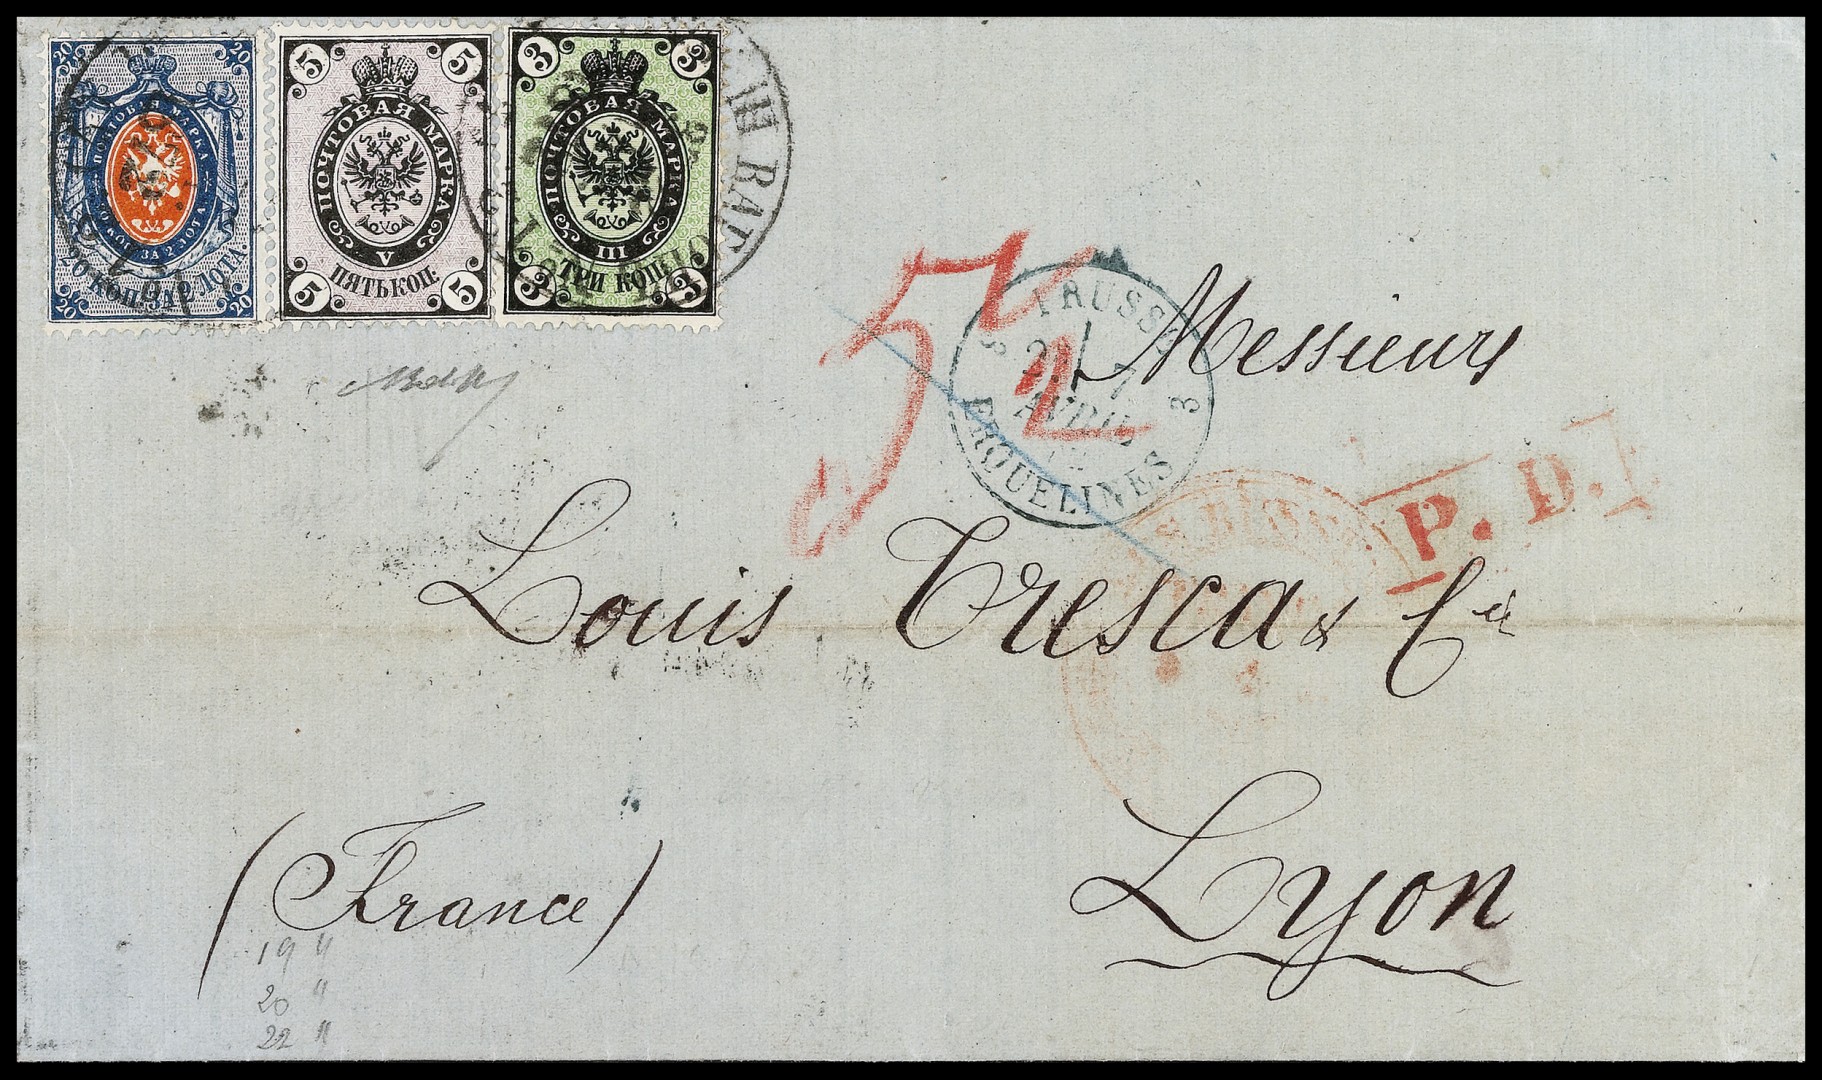 20 20
ПОЧТОВАЯ МАРКА
ЗА 2 ЛОТА
20 КОП. ЗА ЛОТА.
20 20
5 5
ПОЧТОВАЯ МАРКА
V
ПЯТЬ КОП:
5 5
3 3
ПОЧТОВАЯ МАРКА
III
ТРИ КОП:
3 3
5 1/2
PRUSSE
3 3
AVRIL
ERQUELINES
P. D.
Messieurs
Louis Tresca & Cie
Lyon
(France)
19 "
20 "
22 "